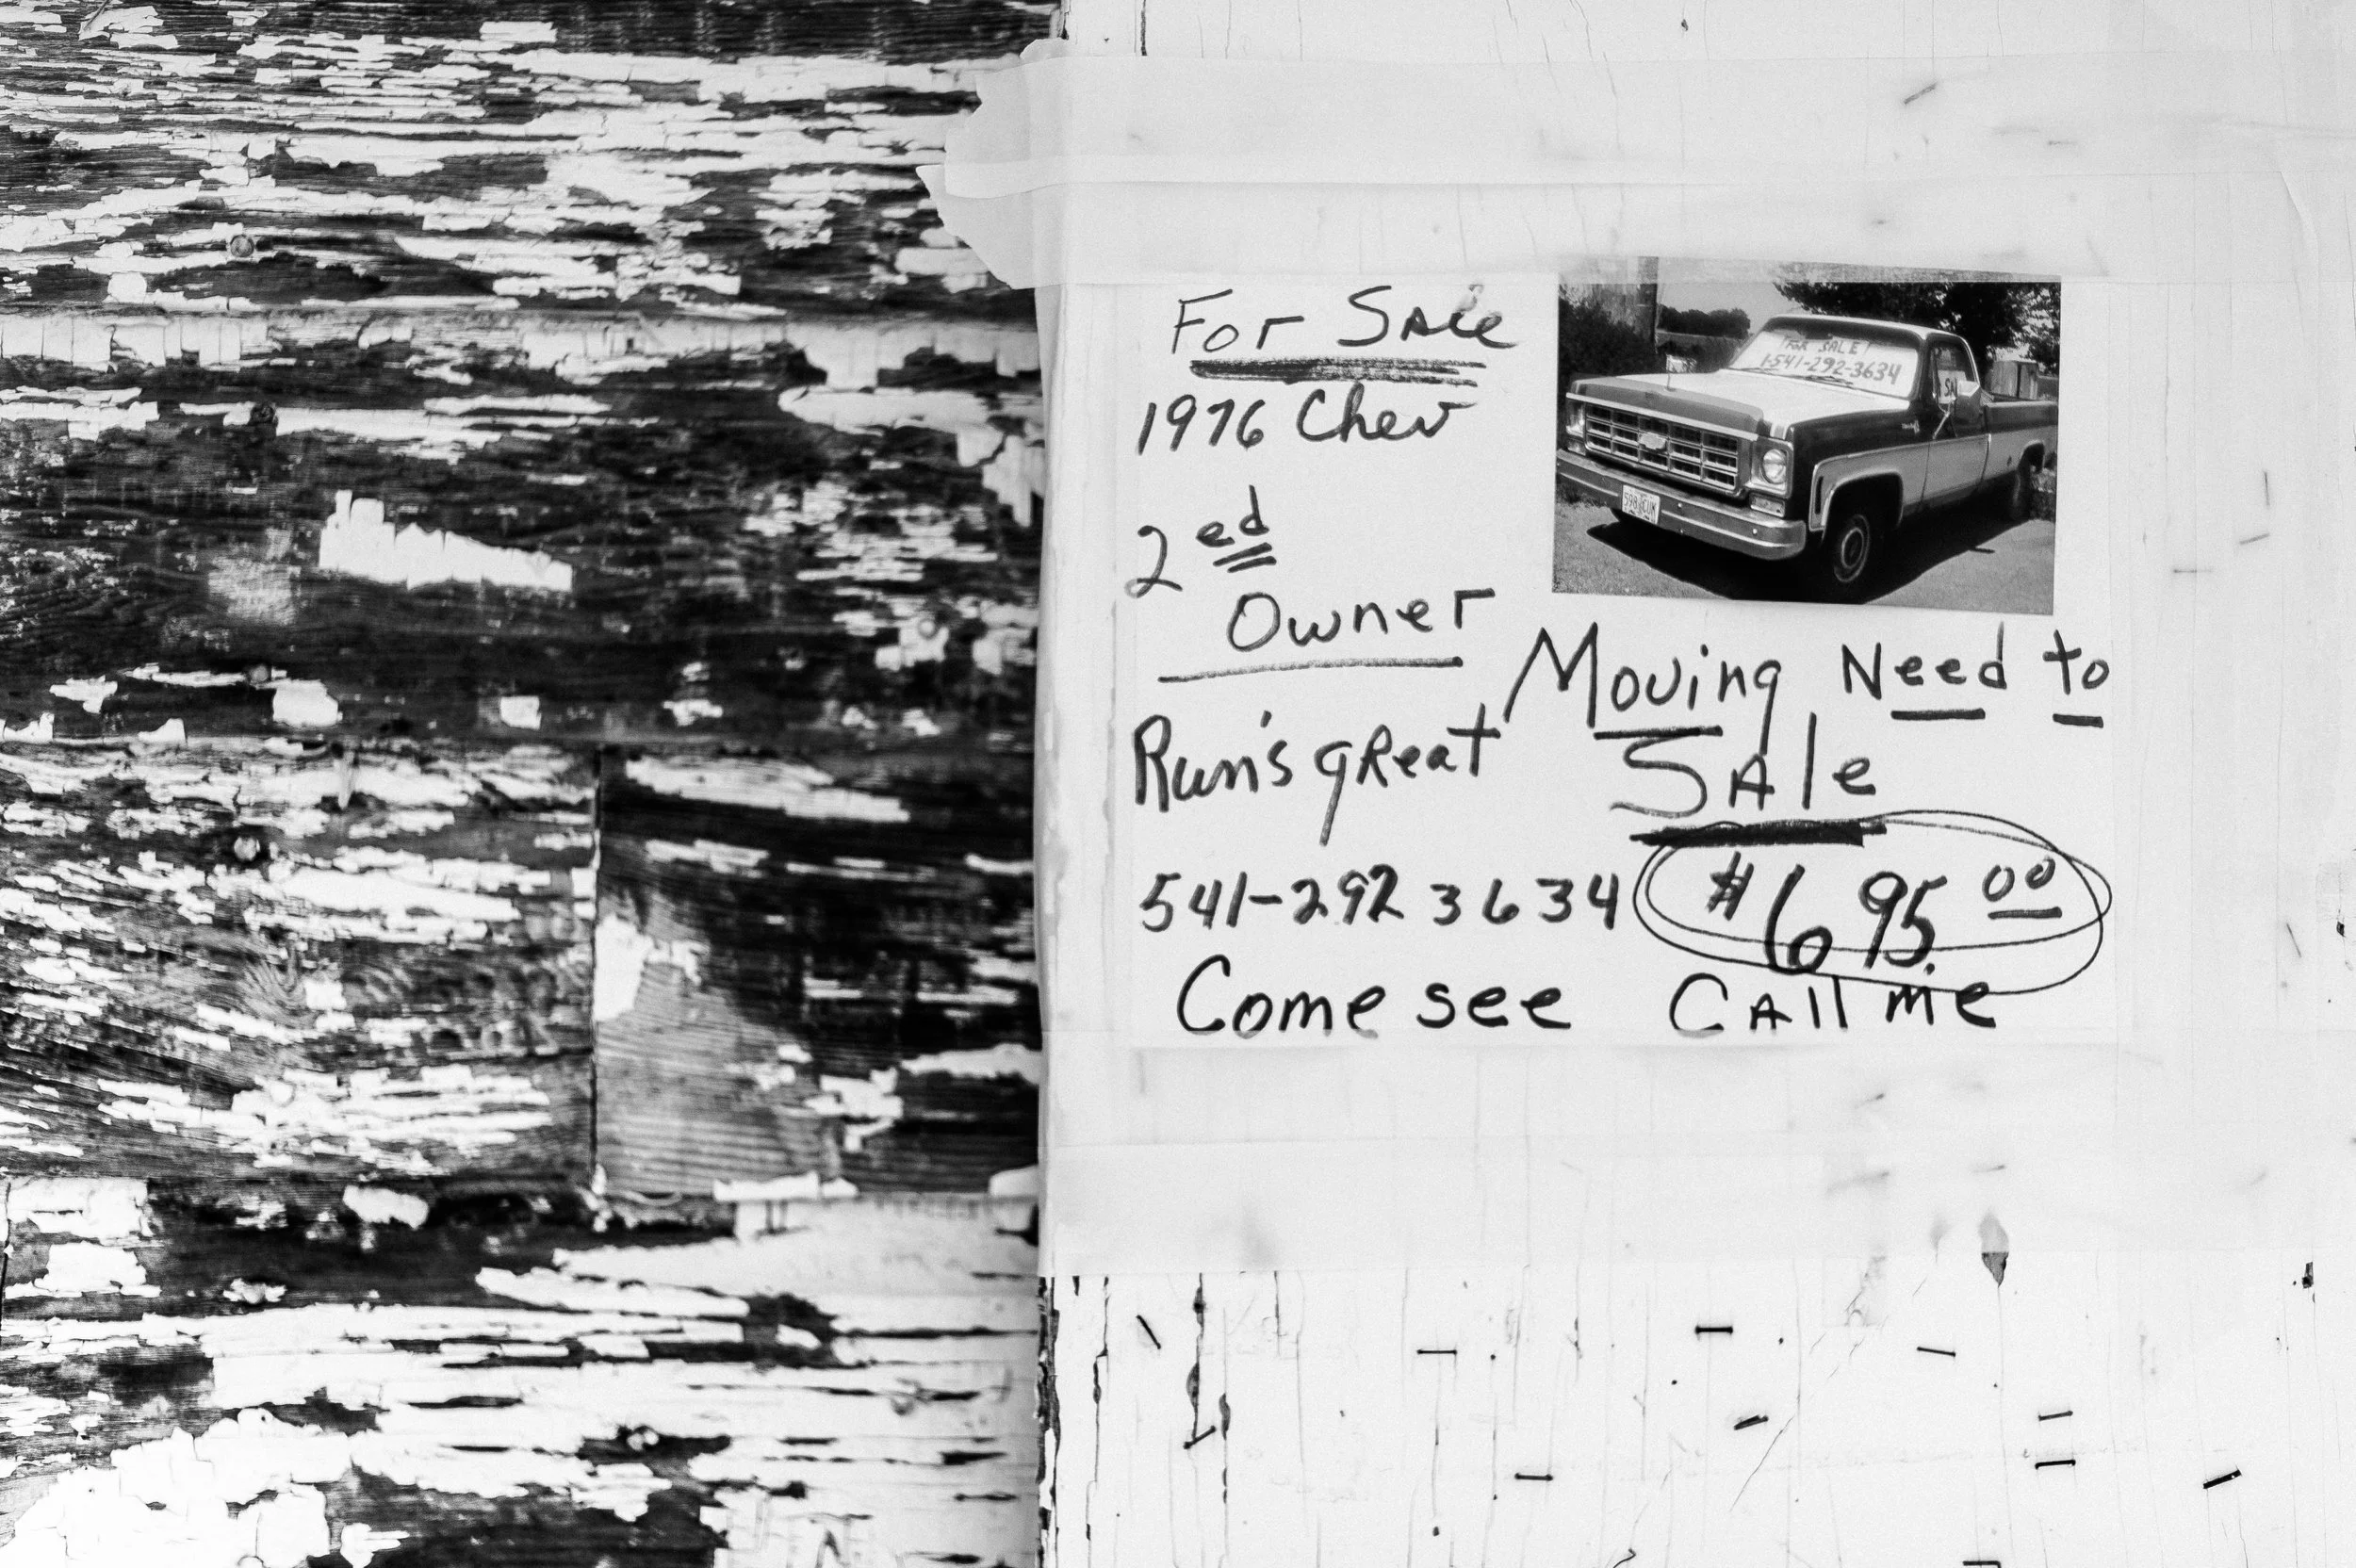 For Sale
1976 Chev
2ed
Owner
Run's great
541-292 3634
Come see
FOR SALE!
1-541-292-3634
SAL
Moving Need to
SAle
$695.00
CAll me